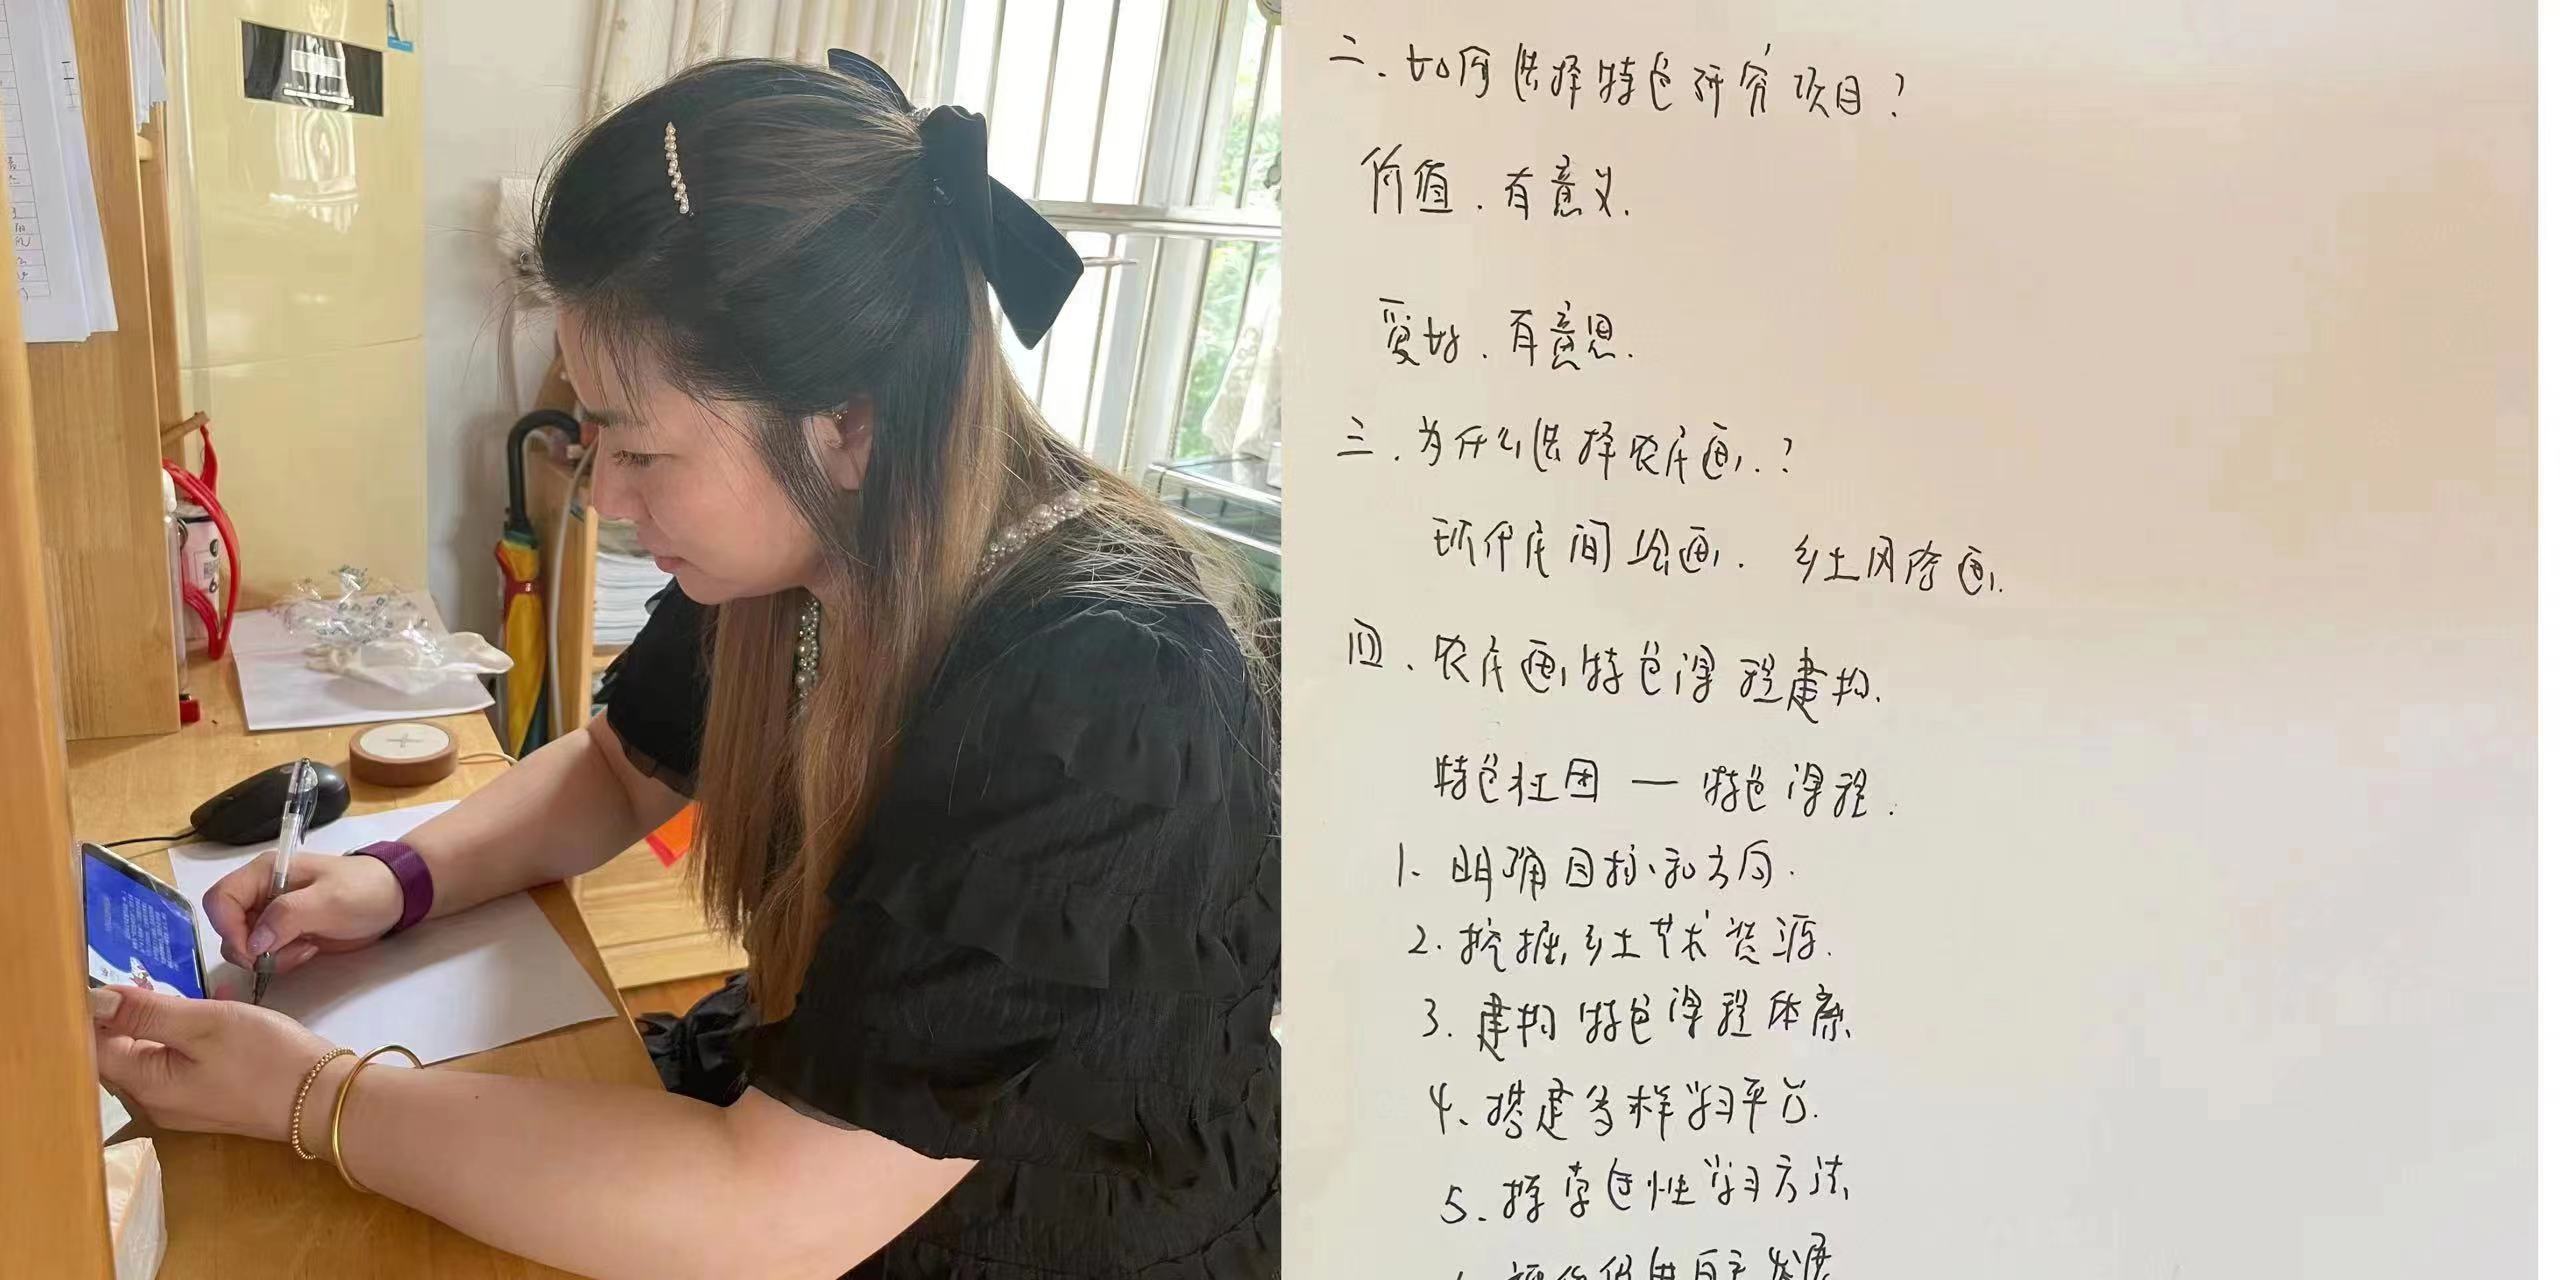 二、如何选择特色研究项目?
价值.有意义.
爱好.有意思.
三.为什么选择农民画.?
现代民间绘画.乡土风俗画.
四、农民画特色课程建构.
特色社团—特色课程.
1、明确目标和方向.
2.挖掘乡土艺术资源.
3.建构特色课程体系
4、搭建多样学习平台.
5.探索包性学习方法
评价促进自主发展